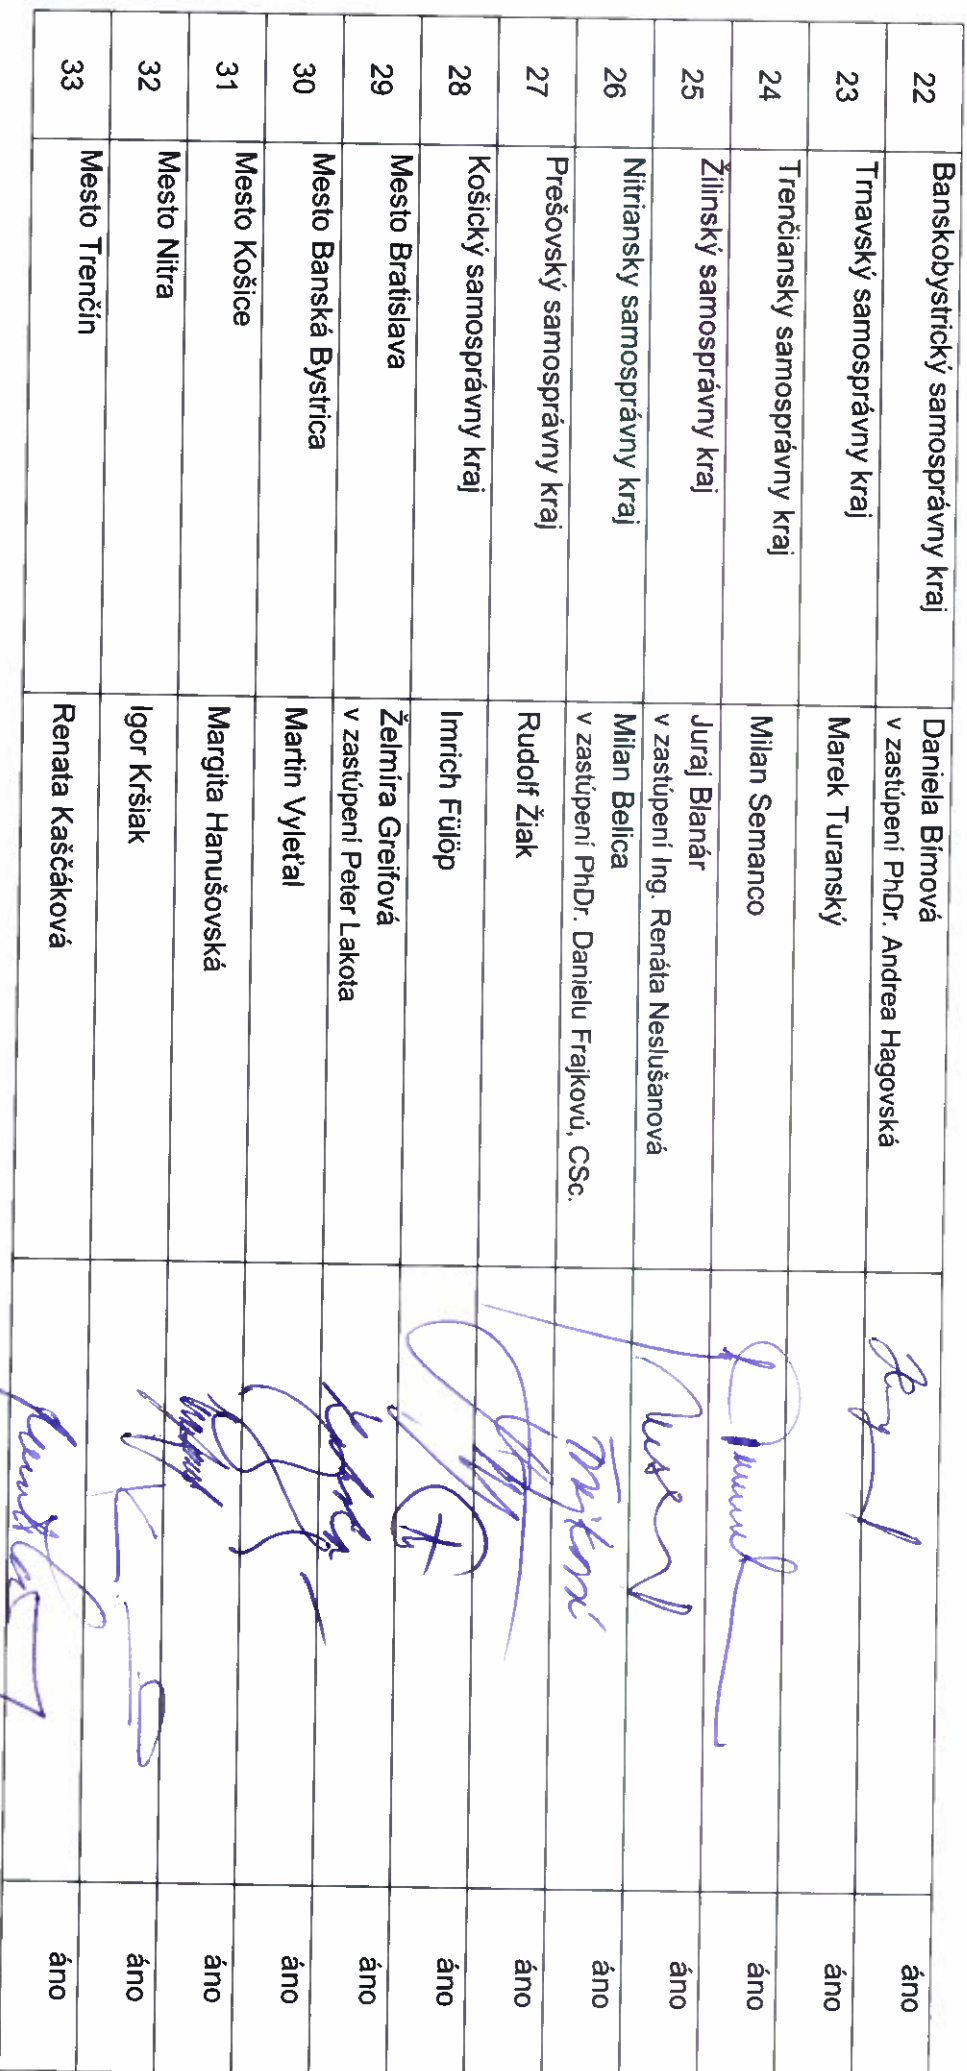 22 Banskobystrický samosprávny kraj Daniela Bímová áno
v zastúpení PhDr. Andrea Hagovská
23 Trnavský samosprávny kraj Marek Turanský áno
24 Trenčiansky samosprávny kraj Milan Semanco áno
25 Žilinský samosprávny kraj Juraj Blanár áno
v zastúpení Ing. Renáta Neslušanová
26 Nitriansky samosprávny kraj Milan Belica áno
v zastúpení PhDr. Danielu Frajkovú, CSc.
27 Prešovský samosprávny kraj Rudolf Žiak áno
28 Košický samosprávny kraj Imrich Fülöp áno
29 Mesto Bratislava Želmíra Greifová áno
v zastúpení Peter Lakota
30 Mesto Banská Bystrica Martin Vyleťal áno
31 Mesto Košice Margita Hanušovská áno
32 Mesto Nitra Igor Kršiak áno
33 Mesto Trenčín Renata Kaščáková áno